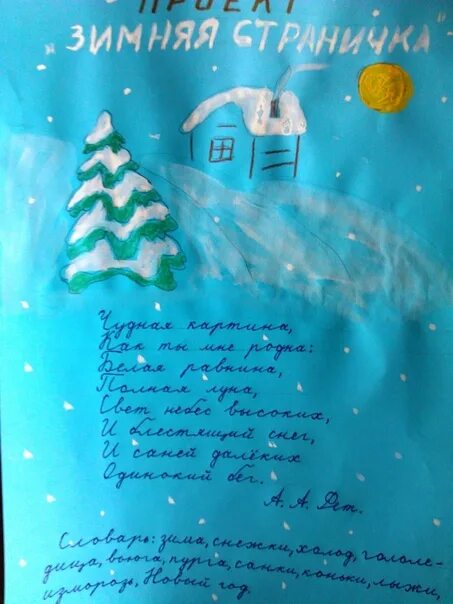 ПРОЕКТ
"ЗИМНЯЯ СТРАНИЧКА"
Чудная картина,
Как ты мне родна:
Белая равнина,
Полная луна,
Свет небес высоких,
И блестящий снег,
И саней далёких
Одинокий бег.
А. А. Фет.
Словарь: зима, снежки, холод, гололе-
дица, вьюга, пурга, санки, коньки, лыжи,
изморозь, Новый год.